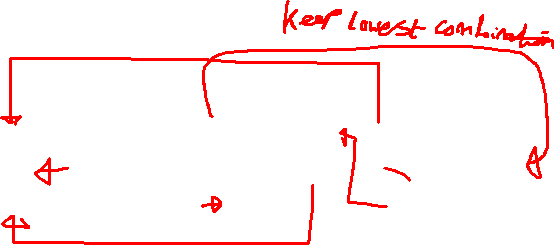 Keep lowest combination